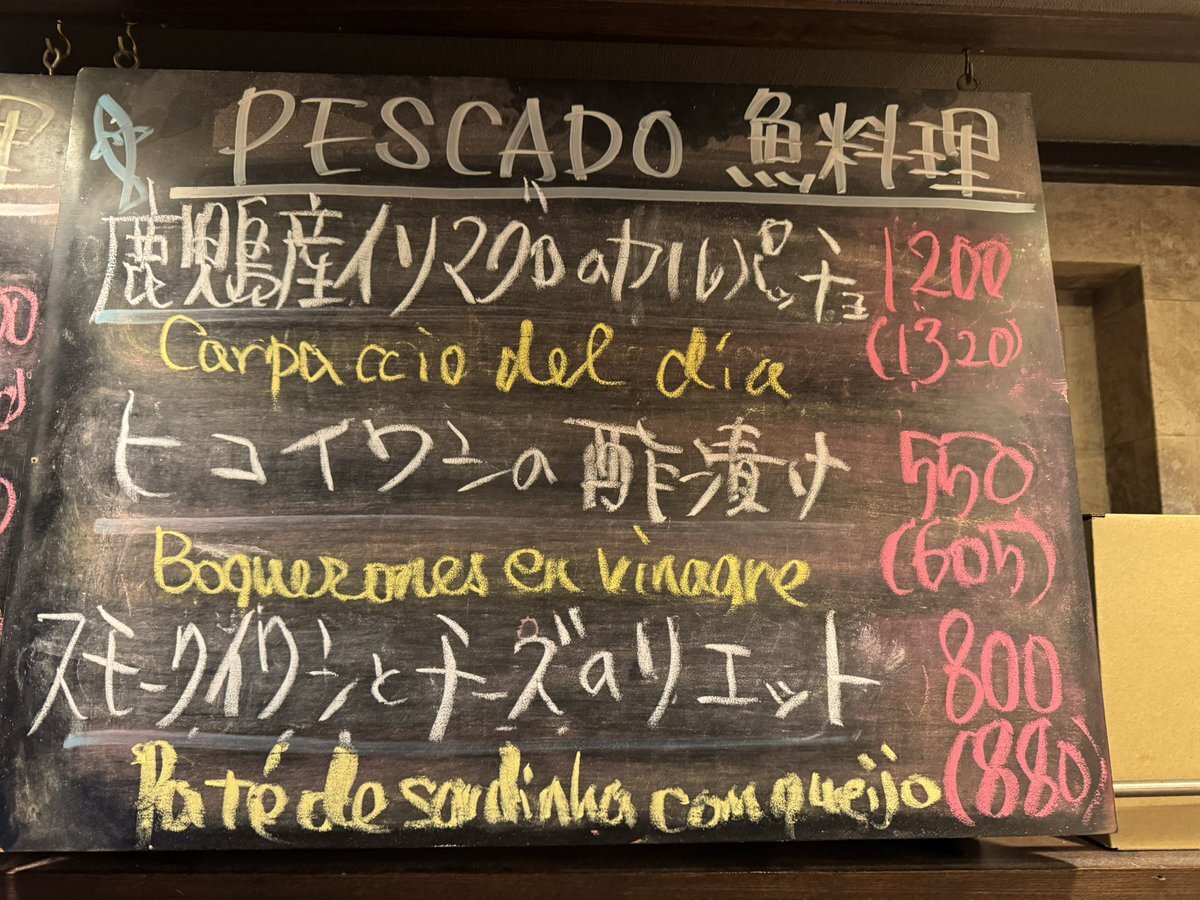 PESCADO 魚料理
鹿児島産イソマグロのカルパッチョ 1200
Carpaccio del día (1320)
ヒコイワシの酢漬け 550
Boquerones en vinagre (605)
スモークイワシとチーズのリエット 800
Paté de sardinha com queijo (880)